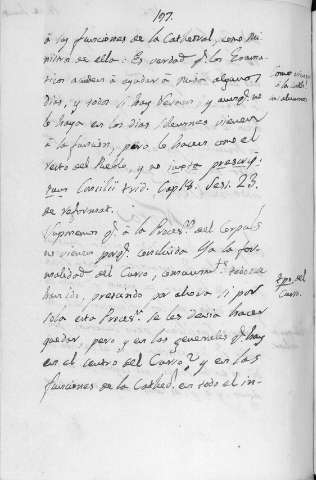 197.
á las funciones de la Cathedral, como Mi-
nistro de ella: Es verdad q.e los Gram-
ticos acuden á ayudar á Misa algunos
dias, y todos si hay Sermon, y aunq.e no
lo haya en los dias solemnes vienen
á la funcion, pero lo hacen como el
resto del Pueblo, y no iuxta prescrip-
tum Concilii trid. Cap. 18. Sesi. 23.
de reformat.
Supremos q.e á la Proces.n del Corpus
no vienen porq.e concluida ya la for-
malidad del Curso,
han ido, prescindo por ahora si por
sola esta Proces.n se les devia hacer
quedar, pero y en las generales q.e hay
en el centro del Curso? y en las
funciones de la Cathed.l en todo el in-
como vienen
á la Cath.l
los alumnos
tpo. del
Curso.